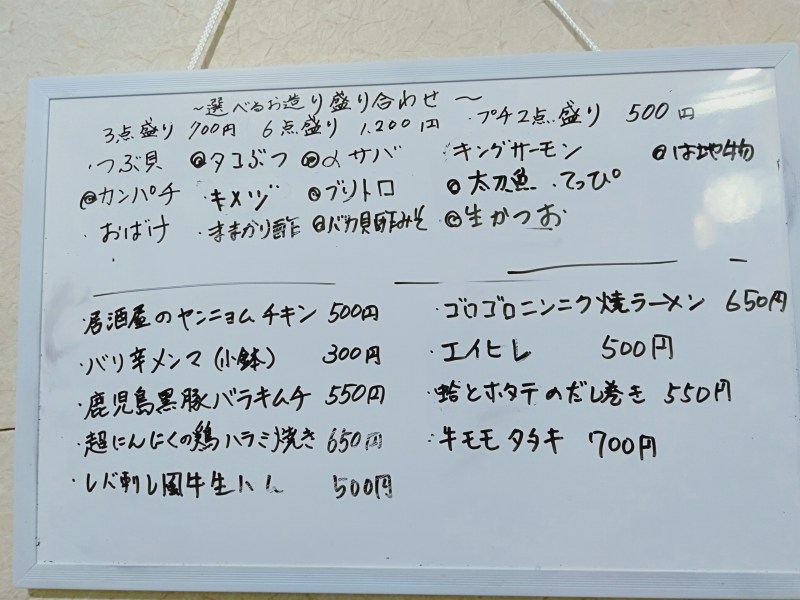 ～選べるお造り盛り合わせ～
3点盛り 700円 6点盛り 1,200円 ・プチ2点盛り 500円
・つぶ貝 @タコぶつ @〆サバ ・キングサーモン @は地物
@カンパチ ・キメジ @ブリトロ @太刀魚 ・てっぴ
・おばけ ・ままかり酢 @バカ貝酢みそ @生かつお
・居酒屋のヤンニョムチキン 500円
・バリ辛メンマ(小鉢) 300円
・鹿児島黒豚バラキムチ 550円
・超にんにくの鶏ハラミ焼き 650円
・レバ刺し風牛生ハム 500円
・ゴロゴロニンニク焼ラーメン 650円
・エイヒレ 500円
・蛤とホタテのだし巻き 550円
・牛モモタタキ 700円